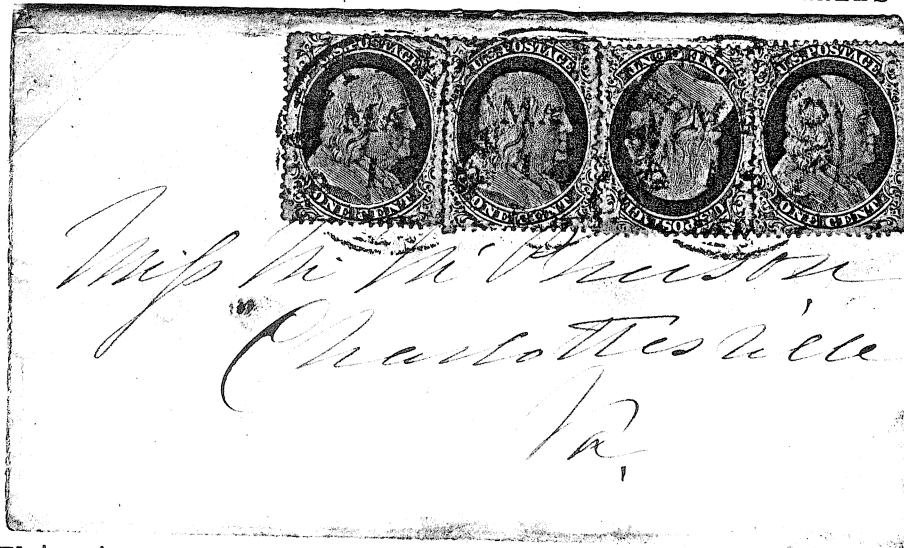 U.S. POSTAGE U.S. POSTAGE ONE CENT U.S. POSTAGE
ONE CENT ONE CENT U.S. POSTAGE ONE CENT
Miss M. McPherson
Charlottesville
Va.